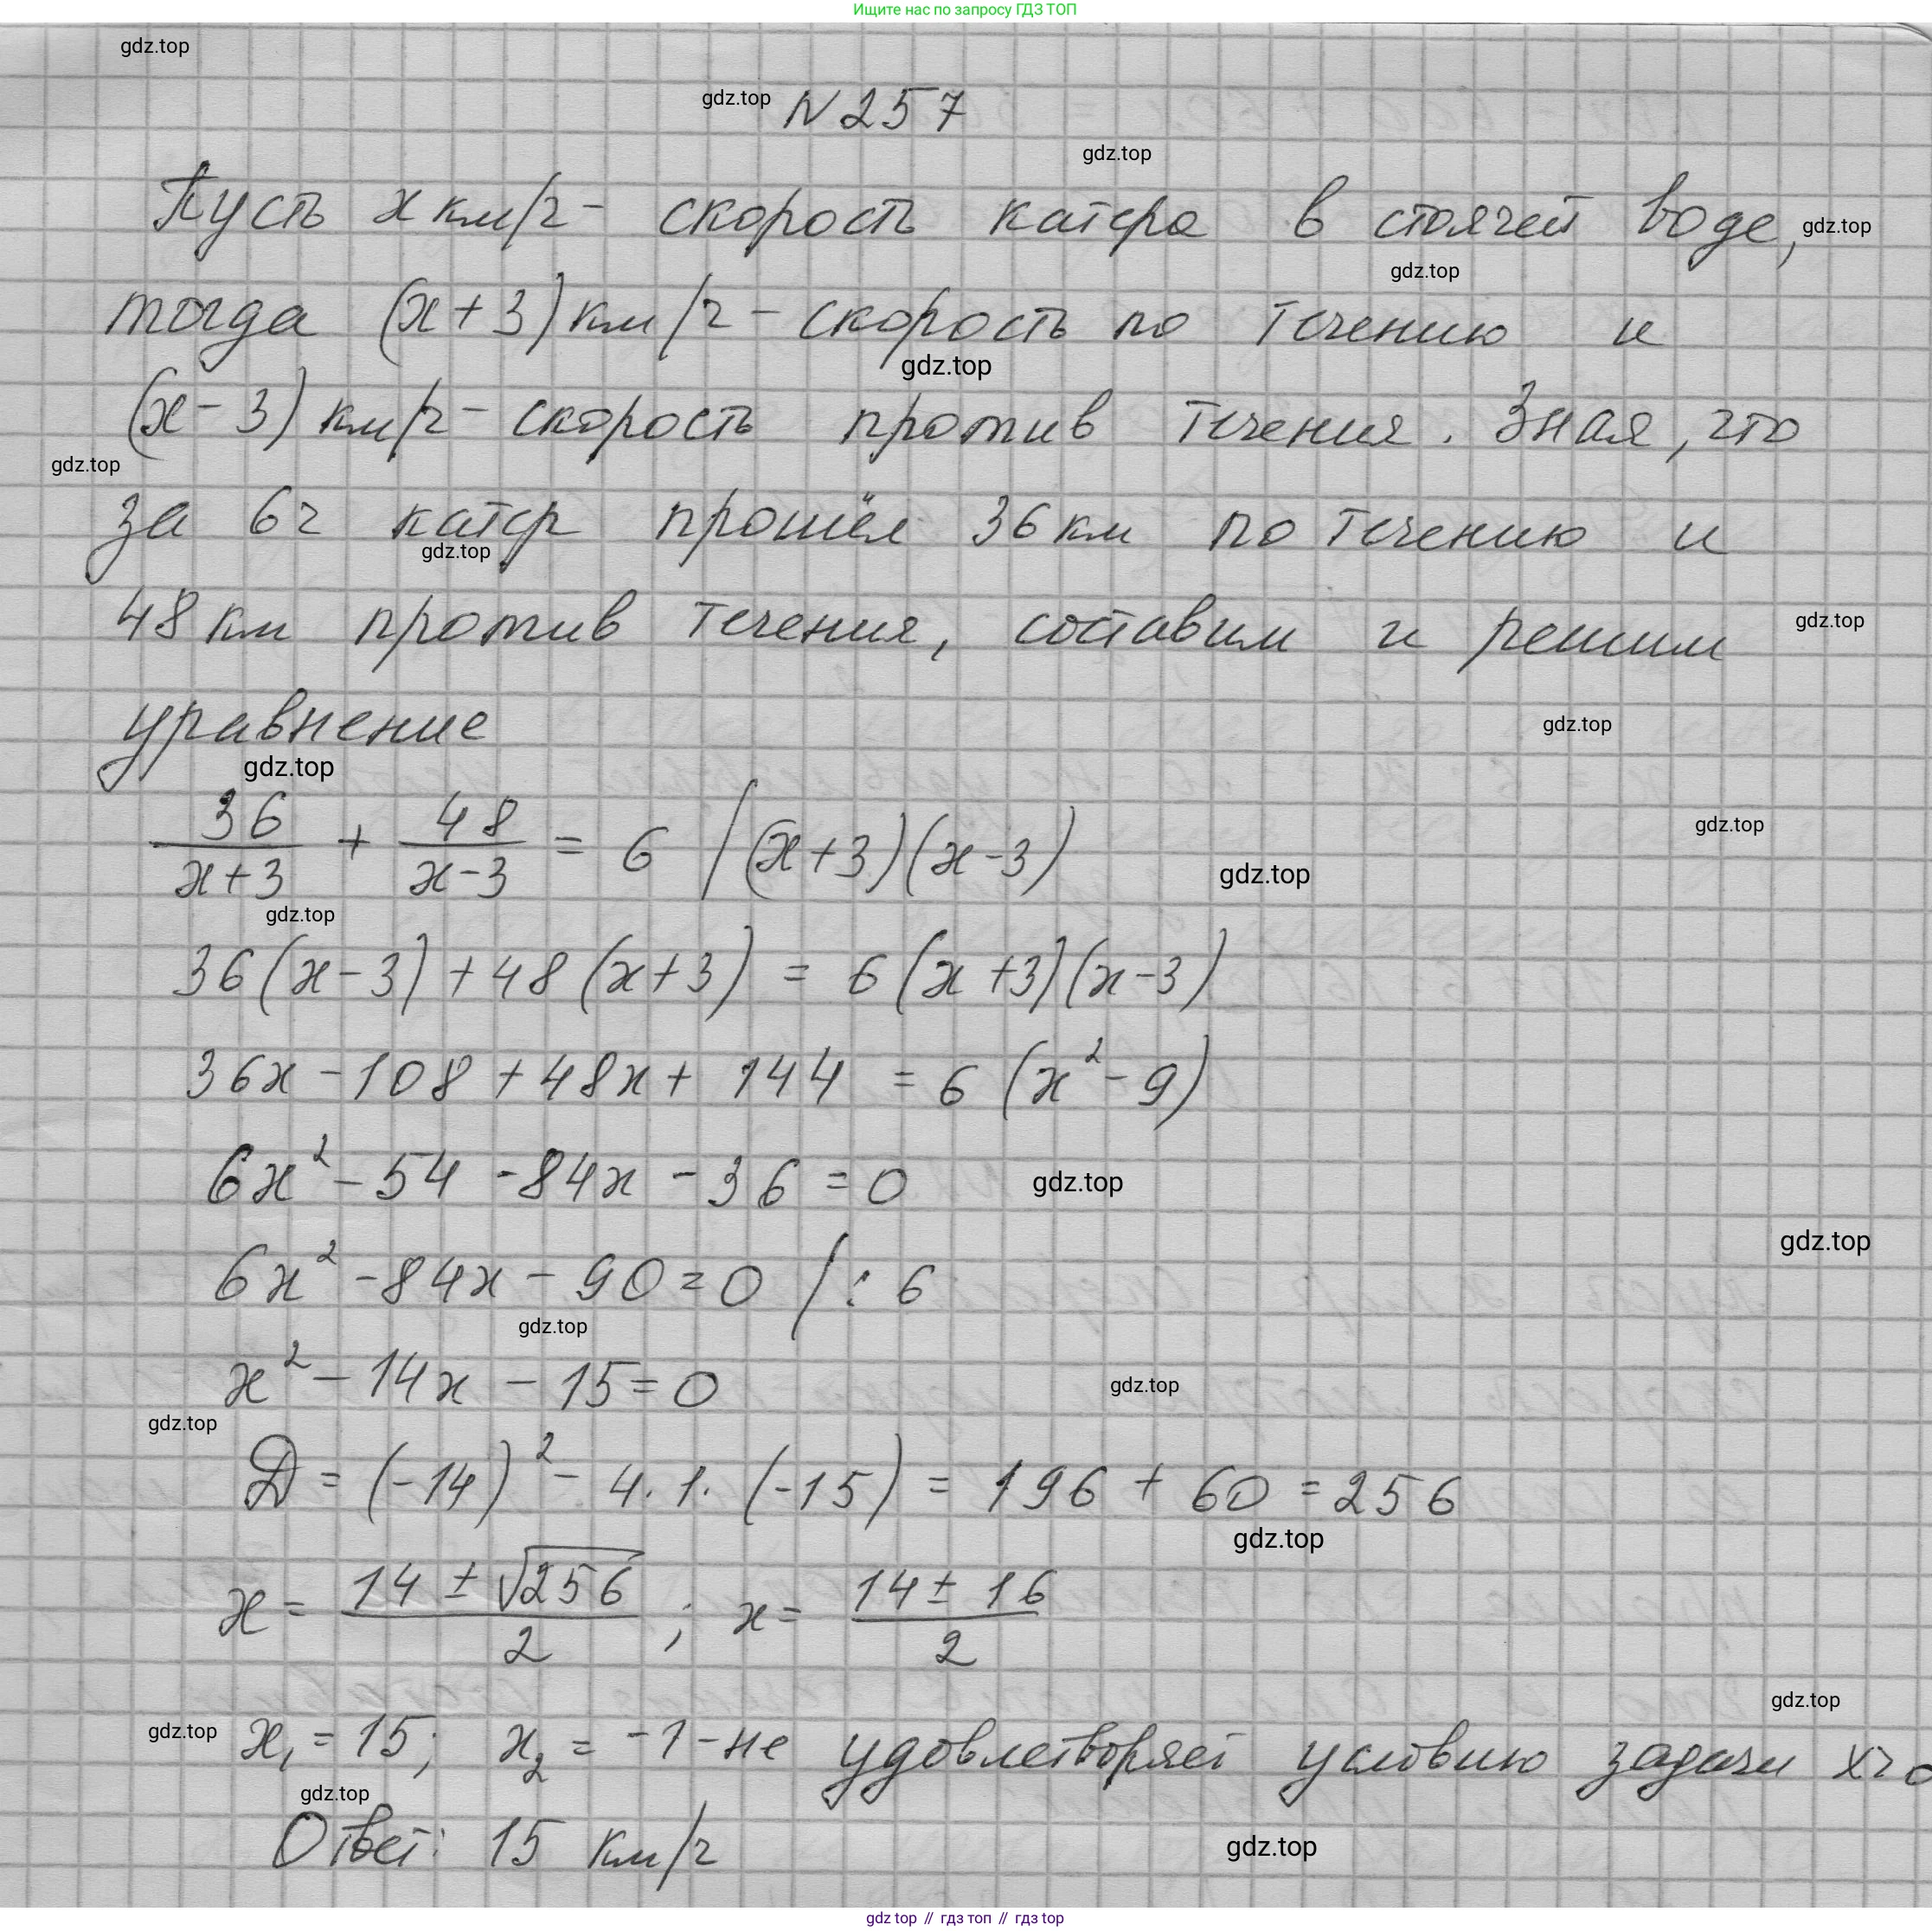 Ищите нас по запросу ГДЗ ТОП
gdz.top
gdz.top N 257
gdz.top
Пусть x км/ч - скорость катера в стоячей воде, gdz.top
gdz.top
тогда (x+3) км/ч - скорость по течению и
gdz.top
(x-3) км/ч - скорость против течения. Зная, что
gdz.top
за 6ч катер прошёл 36 км по течению и
gdz.top
48 км против течения, составим и решим
gdz.top
уравнение
gdz.top
gdz.top
36/(x+3) + 48/(x-3) = 6 |(x+3)(x-3)
gdz.top
gdz.top
gdz.top
36(x-3)+48(x+3) = 6(x+3)(x-3)
36x-108+48x+144 = 6(x²-9)
6x²-54-84x-36=0
gdz.top
gdz.top
6x²-84x-90=0 /:6
gdz.top
x²-14x-15=0
gdz.top
gdz.top
Д = (-14)²-4·1·(-15) = 196+60=256
gdz.top
x = (14±√256)/2; x= (14±16)/2
gdz.top
gdz.top x₁=15; x₂=-1-не удовлетворяет условию задачи x>0
gdz.top
Ответ: 15 км/ч
gdz.top
gdz top // гдз топ // гдз top